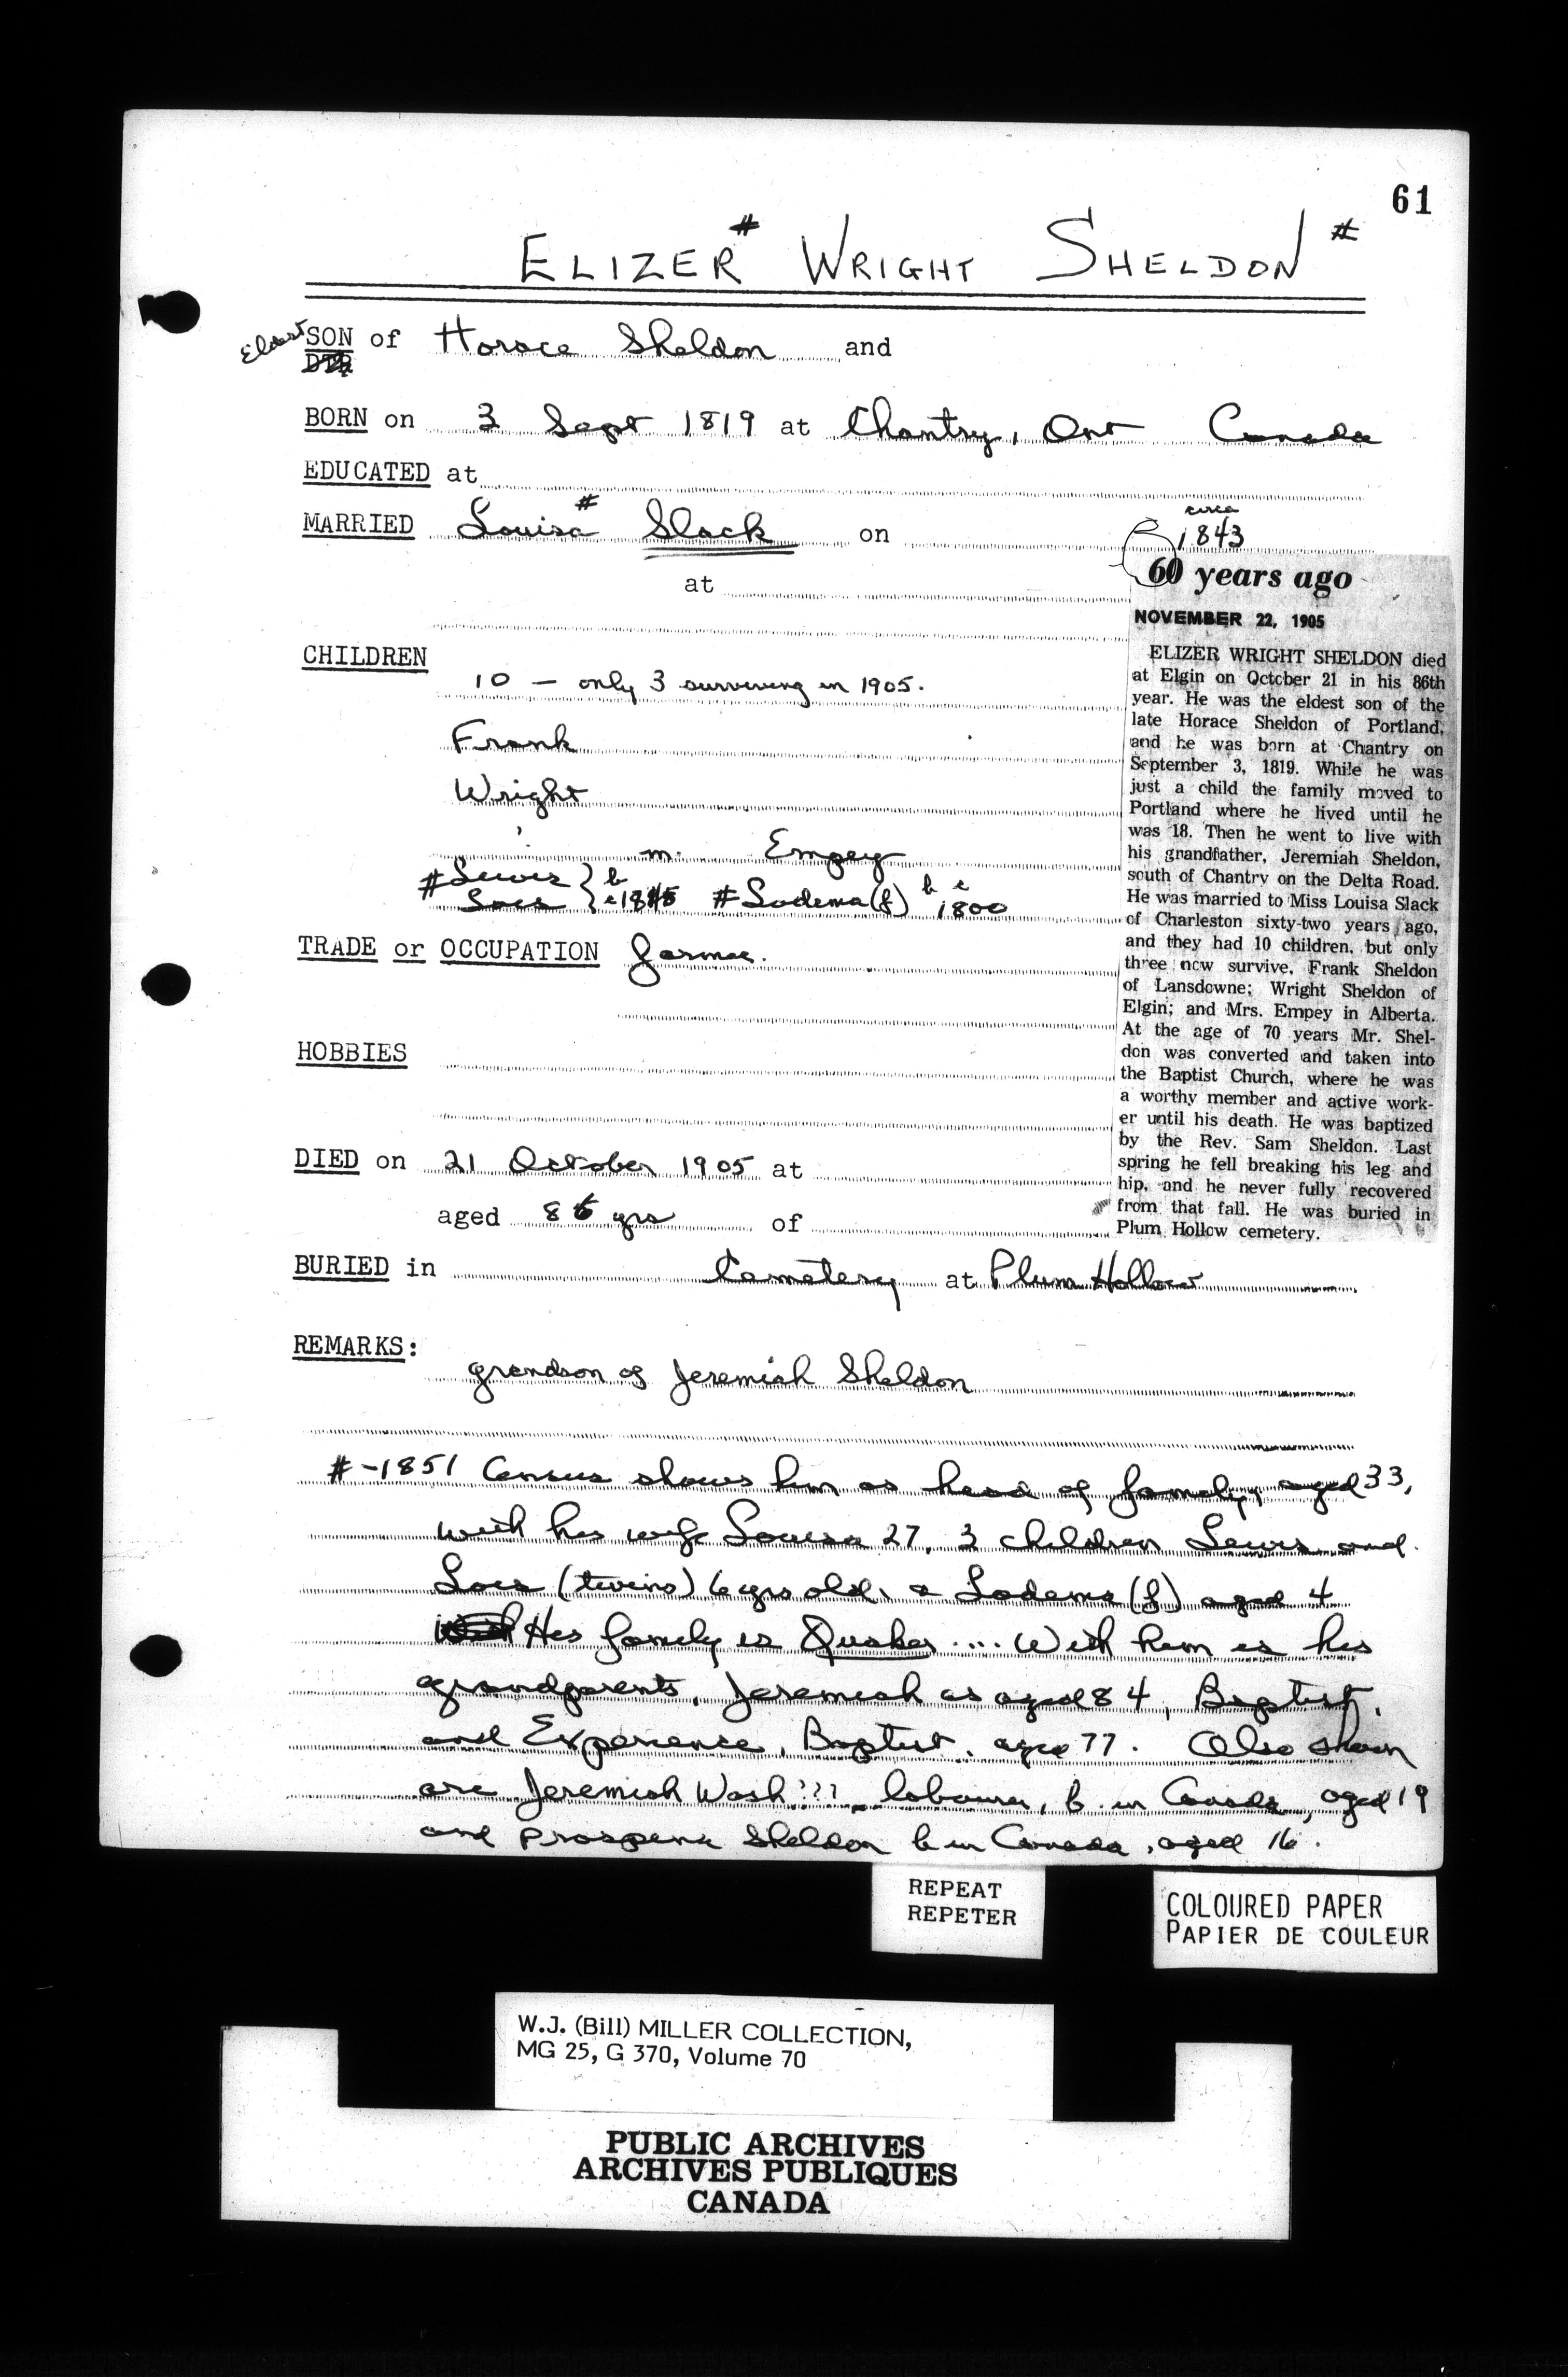 61
ELIZER # WRIGHT SHELDON #
Eldest SON of Horace Sheldon and
BORN on 3 Sept 1819 at Chantry, Ont Canada
EDUCATED at
MARRIED Louisa # Slack on circa 1843
at
CHILDREN
10 — only 3 surviving in 1905.
Frank
Wright
m. Empey
#Lewis
Lois } b c 1845 #Lodema (f) b c 1800
TRADE or OCCUPATION farmer.
HOBBIES
DIED on 21 October 1905 at
aged 86 yrs of
BURIED in Cemetery at Plum Hollow
REMARKS:
grandson of Jeremiah Sheldon
# -1851 Census shows him as head of family, aged 33,
with his wife Louisa 27, 3 children Lewis and
Lois (twins) 6 yrs old, & Lodema (f) aged 4
His family is Quaker .... With him is his
grandparents, Jeremiah as aged 84, Baptist,
and Experience, Baptist, aged 77. Also shown
are Jeremiah Wash???, labourer, b. in Canada, aged 19
and Prosper Sheldon b in Canada, aged 16.
60 years ago
NOVEMBER 22, 1905
ELIZER WRIGHT SHELDON died
at Elgin on October 21 in his 86th
year. He was the eldest son of the
late Horace Sheldon of Portland,
and he was born at Chantry on
September 3, 1819. While he was
just a child the family moved to
Portland where he lived until he
was 18. Then he went to live with
his grandfather, Jeremiah Sheldon,
south of Chantry on the Delta Road.
He was married to Miss Louisa Slack
of Charleston sixty-two years ago,
and they had 10 children, but only
three now survive, Frank Sheldon
of Lansdowne; Wright Sheldon of
Elgin; and Mrs. Empey in Alberta.
At the age of 70 years Mr. Shel-
don was converted and taken into
the Baptist Church, where he was
a worthy member and active work-
er until his death. He was baptized
by the Rev. Sam Sheldon. Last
spring he fell breaking his leg and
hip, and he never fully recovered
from that fall. He was buried in
Plum Hollow cemetery.
REPEAT
REPETER
COLOURED PAPER
PAPIER DE COULEUR
W.J. (Bill) MILLER COLLECTION,
MG 25, G 370, Volume 70
PUBLIC ARCHIVES
ARCHIVES PUBLIQUES
CANADA